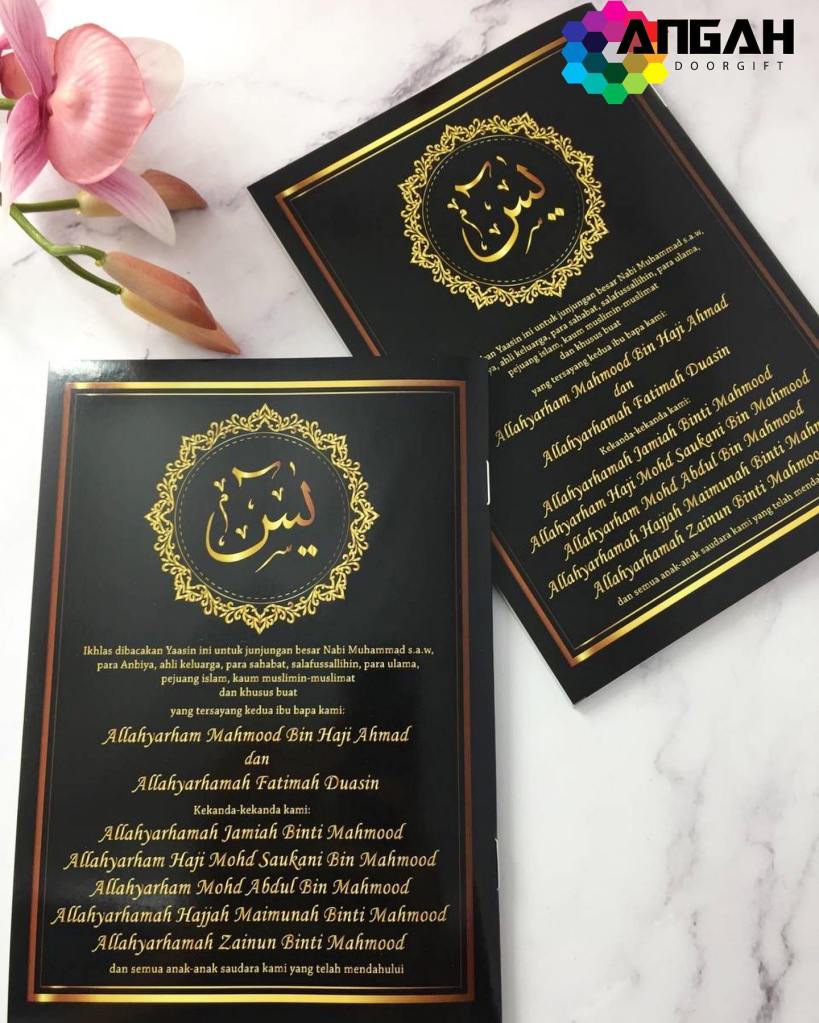 ANGAH
DOORGIFT
يس
Yaasin ini untuk junjungan besar Nabi Muhammad s.a.w,
ahli keluarga, para sahabat, salafussallihin, para ulama,
pejuang islam, kaum muslimin-muslimat
dan khusus buat
yang tersayang kedua ibu bapa kami:
Allahyarham Mahmood Bin Haji Ahmad
dan
Allahyarhamah Fatimah Duasin
Kekanda-kekanda kami:
Allahyarhamah Jamiah Binti Mahmood
Allahyarham Haji Mohd Saukani Bin Mahmood
Allahyarham Mohd Abdul Bin Mahmood
Allahyarhamah Hajjah Maimunah Binti
Allahyarhamah Zainun Binti
dan semua anak-anak saudara kami yang telah
يس
Ikhlas dibacakan Yaasin ini untuk junjungan besar Nabi Muhammad s.a.w,
para Anbiya, ahli keluarga, para sahabat, salafussallihin, para ulama,
pejuang islam, kaum muslimin-muslimat
dan khusus buat
yang tersayang kedua ibu bapa kami:
Allahyarham Mahmood Bin Haji Ahmad
dan
Allahyarhamah Fatimah Duasin
Kekanda-kekanda kami:
Allahyarhamah Jamiah Binti Mahmood
Allahyarham Haji Mohd Saukani Bin Mahmood
Allahyarham Mohd Abdul Bin Mahmood
Allahyarhamah Hajjah Maimunah Binti Mahmood
Allahyarhamah Zainun Binti Mahmood
dan semua anak-anak saudara kami yang telah mendahului